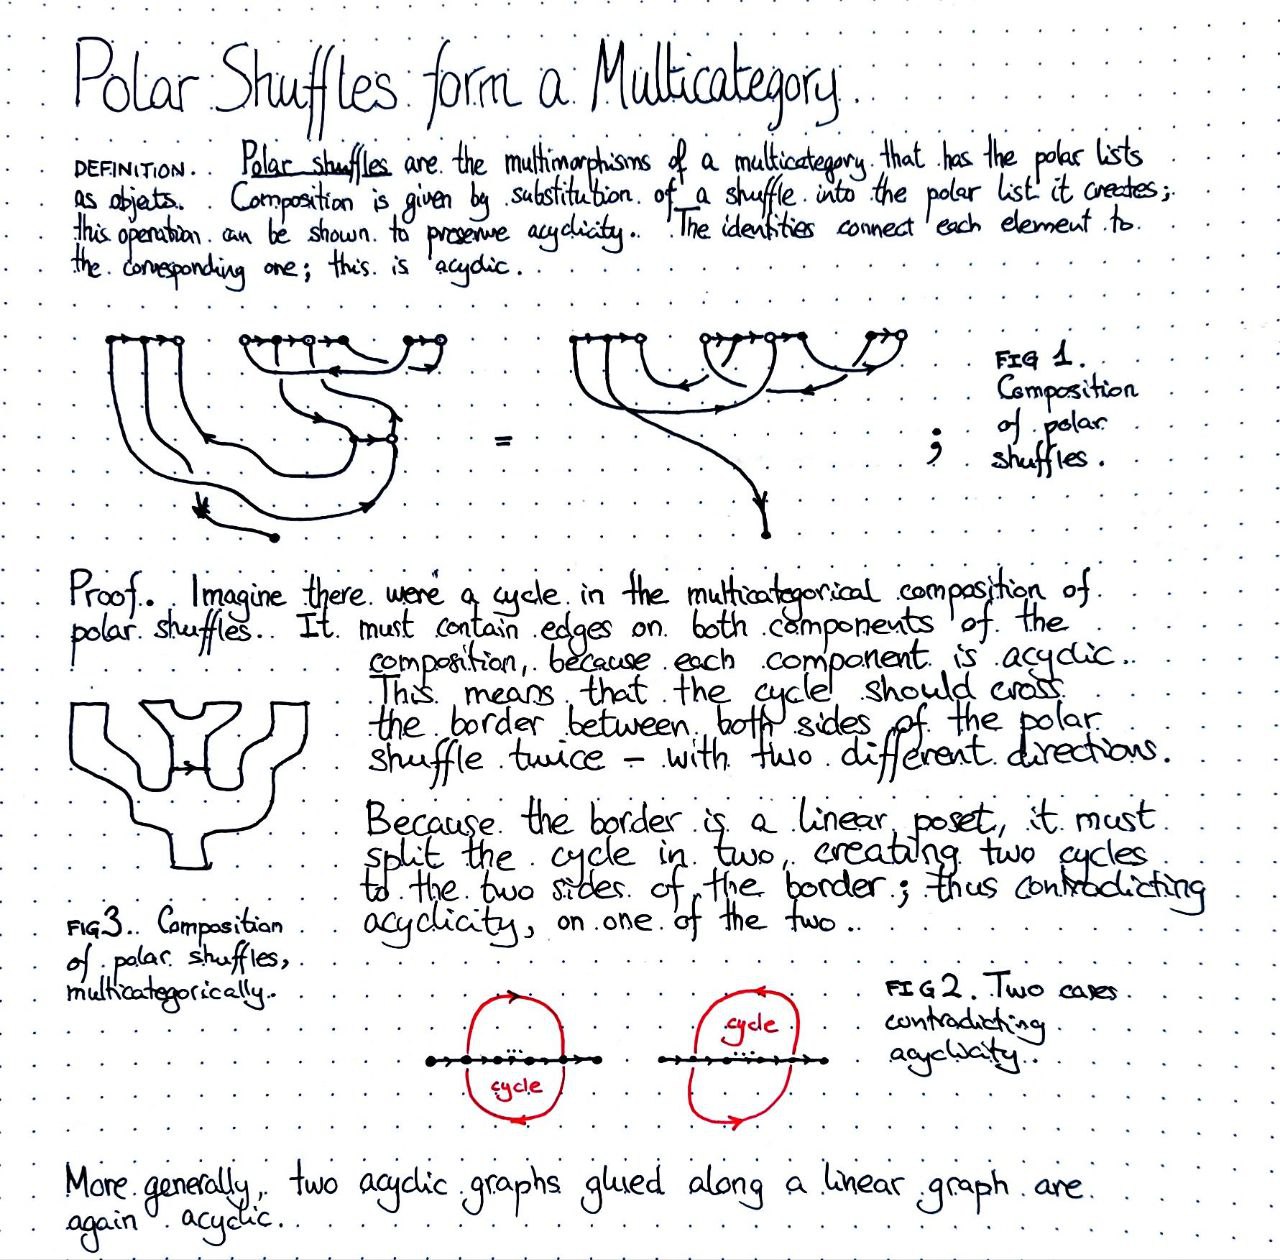 Polar Shuffles form a Multicategory.
DEFINITION. Polar shuffles are the multimorphisms of a multicategory that has the polar lists
as objects. Composition is given by substitution of a shuffle into the polar list it creates;
this operation can be shown to preserve acyclicity. The identities connect each element to
the corresponding one; this is acyclic.
=
;
FIG 1.
Composition
of polar
shuffles.
Proof. Imagine there were a cycle in the multicategorical composition of
polar shuffles. It must contain edges on both components of the
composition, because each component is acyclic.
This means that the cycle should cross
the border between both sides of the polar
shuffle twice – with two different directions.
Because the border is a linear poset, it must
split the cycle in two, creating two cycles
to the two sides of the border; thus contradicting
acyclicity, on one of the two.
FIG3. Composition
of polar shuffles,
multicategorically.
...
cycle
cycle
...
FIG2. Two cases
contradicting
acyclicity.
More generally, two acyclic graphs glued along a linear graph are
again acyclic.